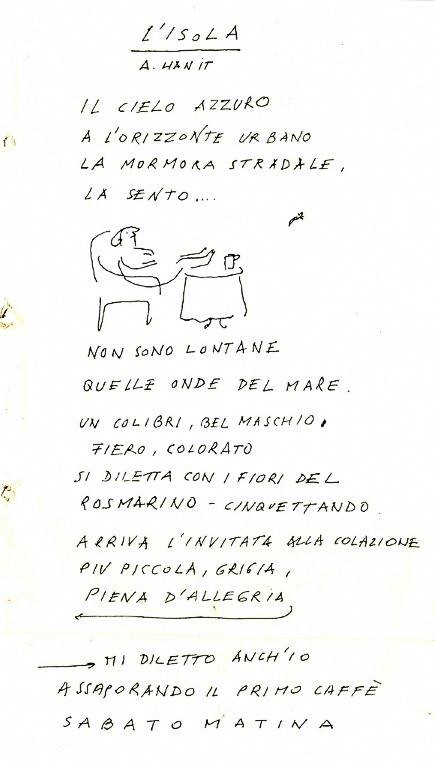 L'ISOLA
A. HANIT
IL CIELO AZZURO
A L'ORIZZONTE URBANO
LA MORMORA STRADALE,
LA SENTO....
NON SONO LONTANE
QUELLE ONDE DEL MARE.
UN COLIBRI, BEL MASCHIO,
FIERO, COLORATO
SI DILETTA CON I FIORI DEL
ROSMARINO - CINQUETTANDO
ARRIVA L'INVITATA ALLA COLAZIONE
PIU PICCOLA, GRIGIA,
PIENA D'ALLEGRIA
MI DILETTO ANCH'IO
ASSAPORANDO IL PRIMO CAFFÈ
SABATO MATINA